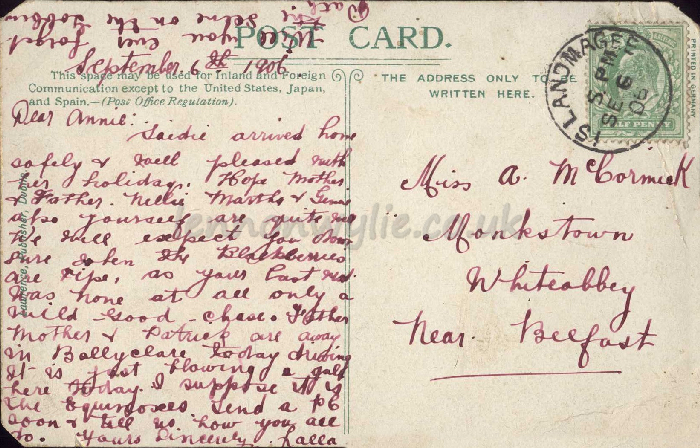 Will you cut
Scene on the
September 6th 1906
POST CARD.
This space may be used for Inland and Foreign
Communication except to the United States, Japan,
and Spain.—(Post Office Regulation).
Dear Annie:
Saidie arrived home
safely & well pleased with
her holiday. Hope Mother
& Father. Nellie Martha &
also yourself are quite
We will expect you down
sure when the Blackberries
are ripe, as your last
was none at all only a
wild Good - chase. Father
Mother & Patrick are away
in Ballyclare today driving
It is just blowing a gale
here today I suppose it is
the Equinoxes. Send a PC
soon & tell us how you all
do. Yours Sincerely. Lalla
THE ADDRESS ONLY TO BE
WRITTEN HERE.
ISLANDMAGEE
5 PM
SE 6
06
HALF PENNY
PRINTED IN GERMANY
Miss A. McCormick
Monkstown
Whiteabbey
Near Belfast
Lawrence, Publisher, Dublin
lennonwylie.co.uk